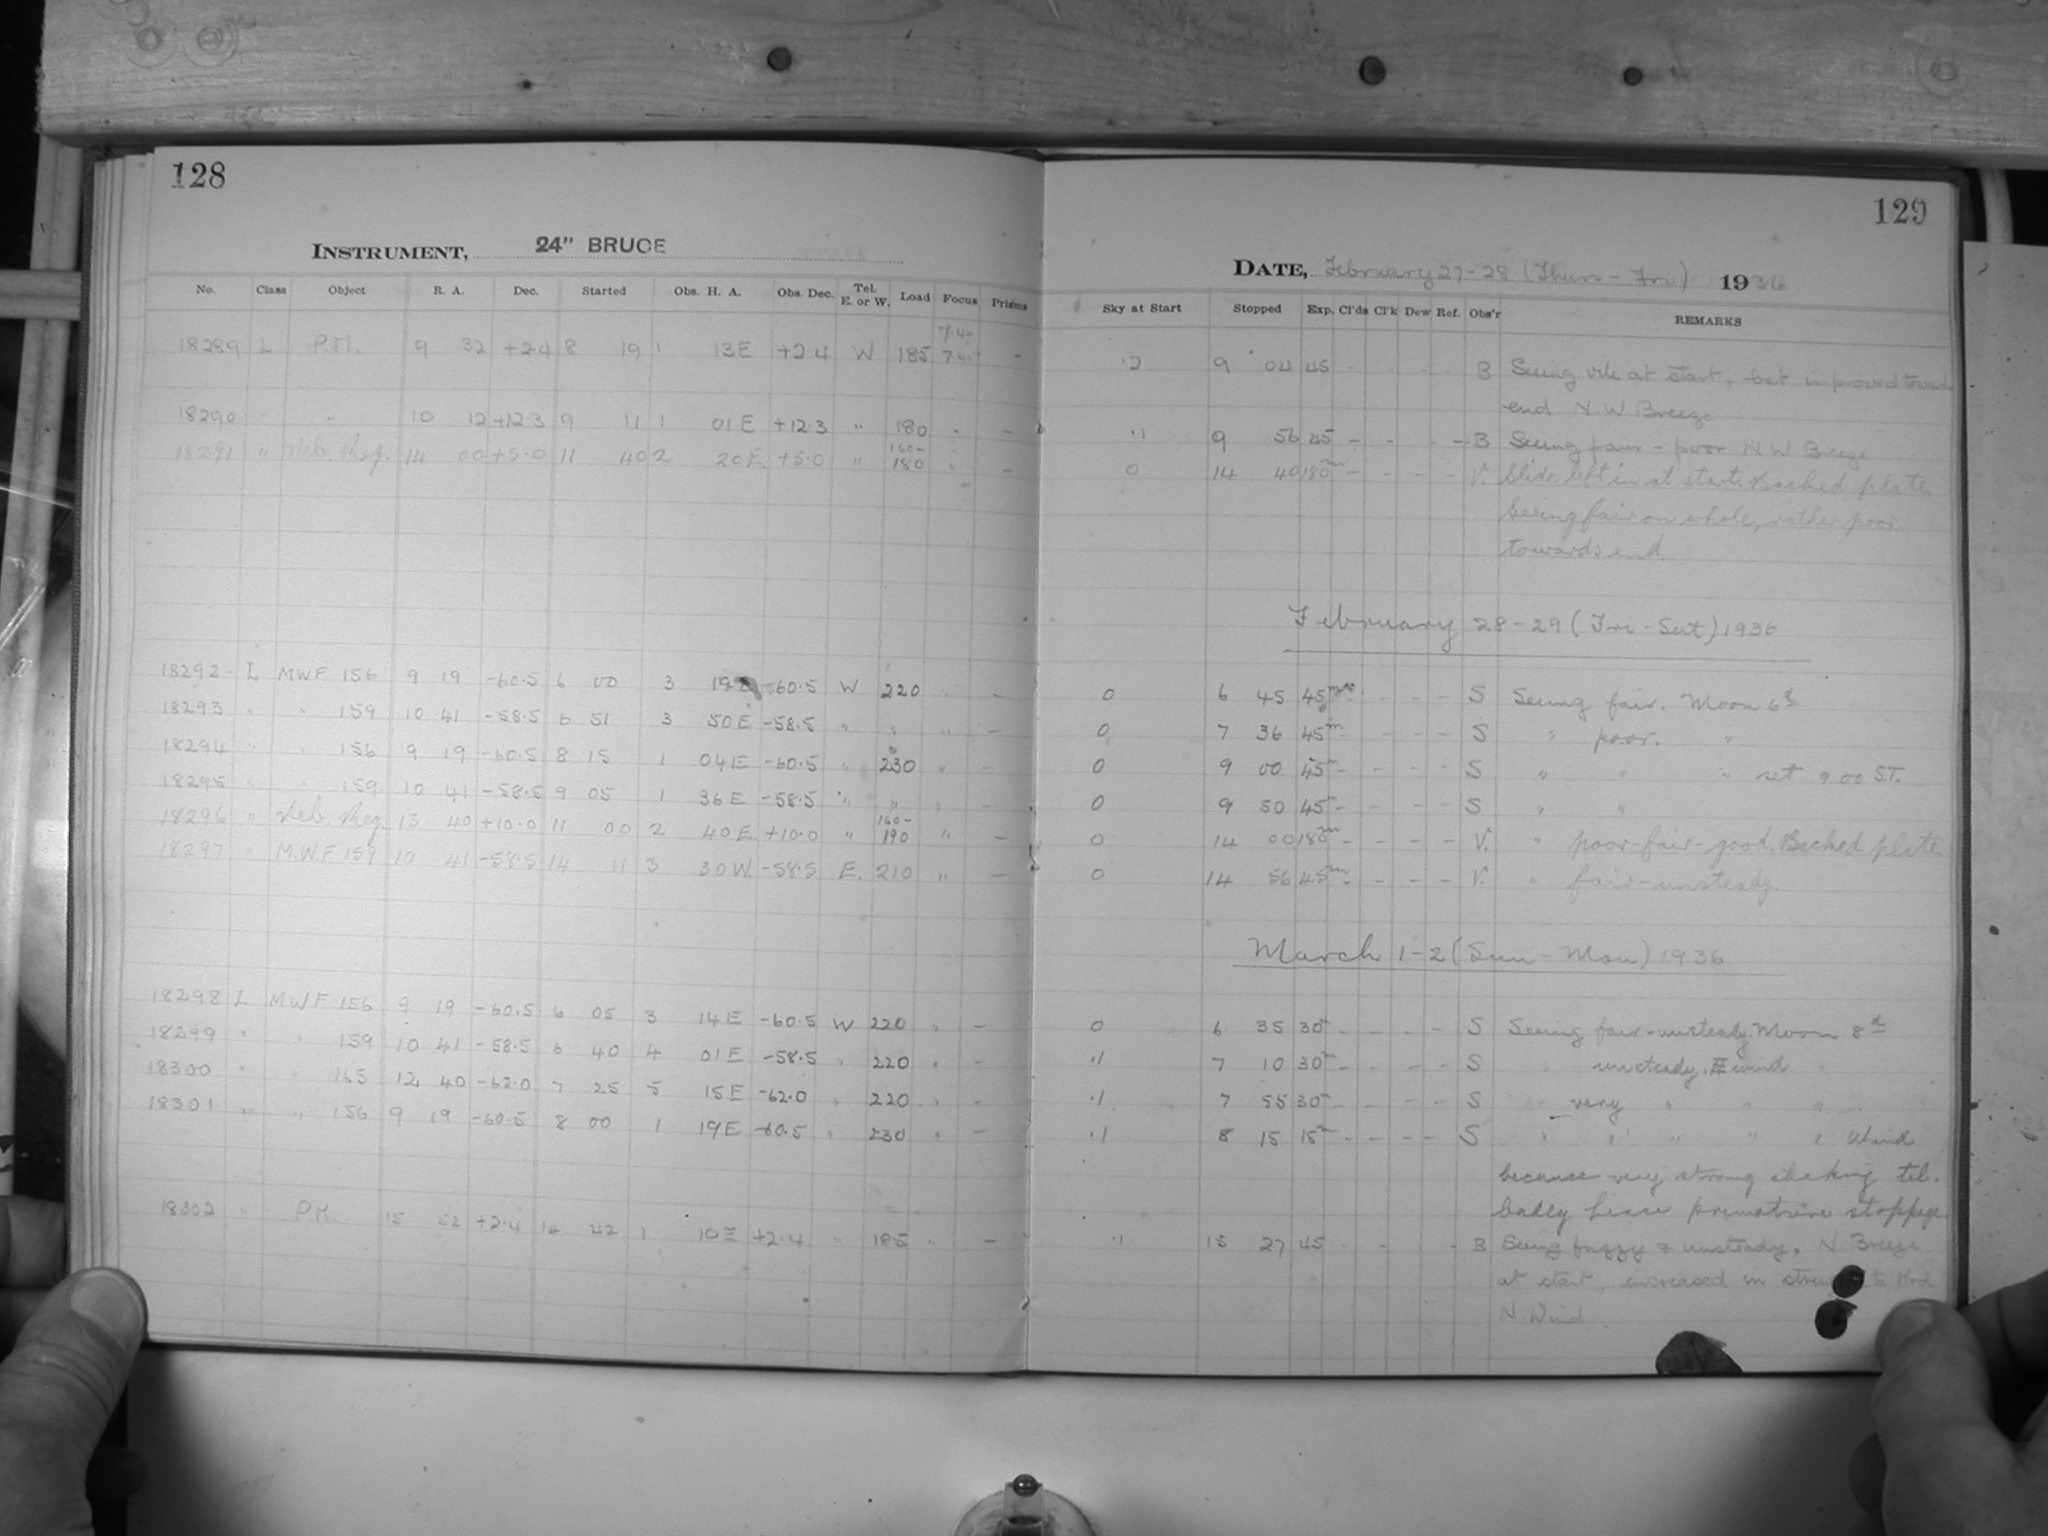 128
INSTRUMENT, 24" BRUCE
No. Class Object R. A. Dec. Started Obs. H. A. Obs. Dec. Tel. E. or W. Load Focus Prisms
7.40
18289 L P.M. 9 32 +2.4 8 19 1 13 E +2.4 W 185 –
18290 " " 10 12 +12.3 9 11 1 01 E +12.3 " 180 " –
160-
18291 " Neb. Reg. 14 00 +5.0 11 40 2 20 E +5.0 " 180 " –
18292 L MWF 156 9 19 -60.5 6 00 3 19 -60.5 W 220 " –
18293 " " 159 10 41 -58.5 6 51 3 50 E -58.5 " " " –
18294 " " 156 9 19 -60.5 8 15 1 04 E -60.5 " 230 " –
18295 " " 159 10 41 -58.5 9 05 1 36 E -58.5 " " " –
160-
18296 " Neb. Reg. 13 40 +10.0 11 00 2 40 E +10.0 " 190 " –
18297 " M.W.F 159 10 41 -58.5 14 11 3 30 W. -58.5 E. 210 " –
18298 L MWF 156 9 19 -60.5 6 05 3 14 E -60.5 W 220 " –
18299 " " 159 10 41 -58.5 6 40 4 01 E -58.5 " 220 " –
18300 " " 165 12 40 -62.0 7 25 5 15 E -62.0 " 220 " –
18301 " " 156 9 19 -60.5 8 00 1 19 E -60.5 " 230 " –
18302 " P.M. 15 52 +2.4 14 42 1 10 E +2.4 " 185 " –
129
DATE, February 27-28 (Thurs - Fri) 1936
Sky at Start Stopped Exp. Cl'ds Cl'k Dew Ref. Obs'r REMARKS
.2 9 04 45 - - - - B Seeing vile at start, but improved toward
end N.W Breeze
.1 9 56 45 - - - - B Seeing fair - poor N W Breeze
0 14 40 180m - - - - V. Slide left in at start. Backed plate
Seeing fair on whole, rather poor
towards end.
February 28-29 (Fri-Sat) 1936
0 6 45 45m - - - - S Seeing fair. Moon 6d
0 7 36 45m - - - - S " poor. "
0 9 00 45m - - - - S " " " set 9 00 S.T.
0 9 50 45m - - - - S " "
0 14 00 180m - - - - V. " poor-fair-good. Backed plate
0 14 56 45m - - - - V. " fair-unsteady.
March 1-2 (Sun - Mon) 1936
0 6 35 30m - - - - S Seeing fair-unsteady. Moon 8d
.1 7 10 30m - - - - S " unsteady, wind "
.1 7 55 30m - - - - S " very " " "
.1 8 15 15m - - - - S " " " " " Wind
because very strong shaking tel.
badly hence premature stoppage.
.1 15 27 45 - - - - B Seeing fuzzy & unsteady. N Breeze
at start, increased in strength to Mod
N. Wind.